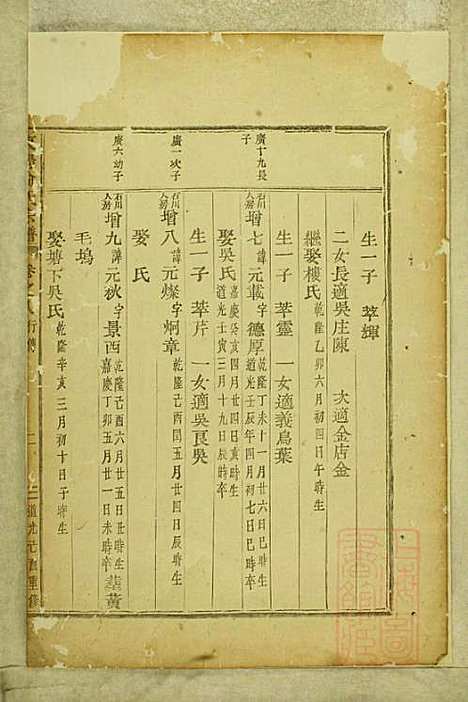 生一子 萃輝
二女長適吳庄陳 次適金店金
繼娶樓氏 乾隆乙卯六月初四日午時生
生一子 萃靈 一女適義烏葉
廣十九長子
石川人房 增七 諱元載 字德厚 乾隆丁未十一月廿六日巳時生 道光壬辰年四月初七日巳時卒
娶吳氏 嘉慶癸亥四月廿四日寅時生 道光壬寅三月十九日辰時卒
生一子 萃芹 一女適吳良吳
廣一次子
石川人房 增八 諱元燦 字炯章 乾隆己酉閏五月廿四日辰時生
娶 氏
廣六幼子
人房 增九 諱元秋 字景西 乾隆己酉六月廿五日丑時生 嘉慶丁卯五月廿一日未時卒 塟黃
毛塢
娶塘下吳氏 乾隆辛亥三月初十日子時生
氏宗譜 卷之八 行傳 二 道光己酉重修